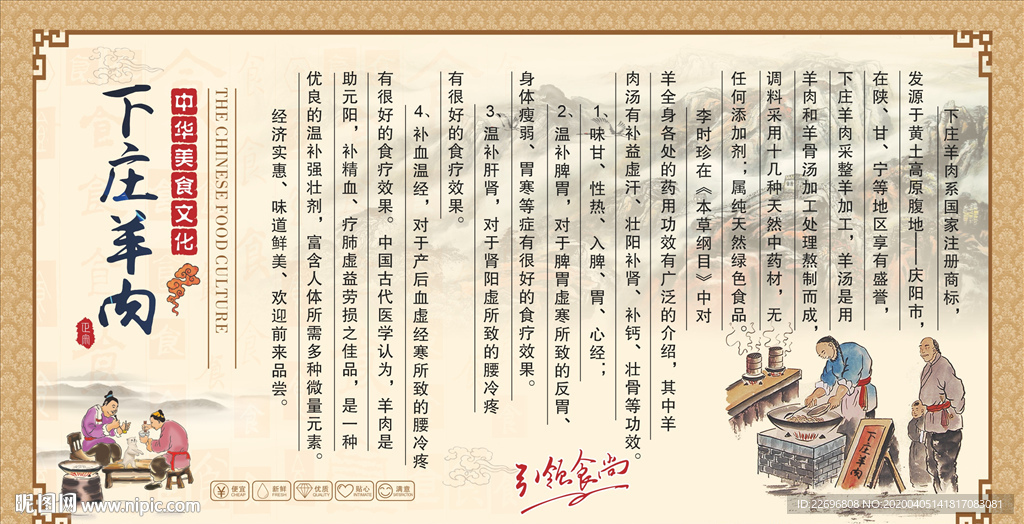 下庄羊肉系国家注册商标，
发源于黄土高原腹地——庆阳市，
在陕、甘、宁等地区享有盛誉，
下庄羊肉采整羊加工，羊汤是用
羊肉和羊骨汤加工处理熬制而成，
调料采用十几种天然中药材，无
任何添加剂；属纯天然绿色食品。
李时珍在《本草纲目》中对
羊全身各处的药用功效有广泛的介绍，其中羊
肉汤有补益虚汗、壮阳补肾、补钙、壮骨等功效。
1、味甘、性热、入脾、胃、心经；
2、温补脾胃，对于脾胃虚寒所致的反胃、
身体瘦弱、胃寒等症有很好的食疗效果。
3、温补肝肾，对于肾阳虚所致的腰冷疼
有很好的食疗效果。
4、补血温经，对于产后血虚经寒所致的腰冷疼
有很好的食疗效果。中国古代医学认为，羊肉是
助元阳，补精血、疗肺虚益劳损之佳品，是一种
优良的温补强壮剂，富含人体所需多种微量元素。
经济实惠、味道鲜美、欢迎前来品尝。
THE CHINESE FOOD CULTURE
中华美食文化
下庄羊肉
下庄羊肉
引领食尚
便宜
CHEAP
新鲜
FRESH
优质
QUALITY
贴心
INTIMATE
满意
SATISFACTION
昵图网
www.nipic.com
ID:22696808 NO:20200405141817083081